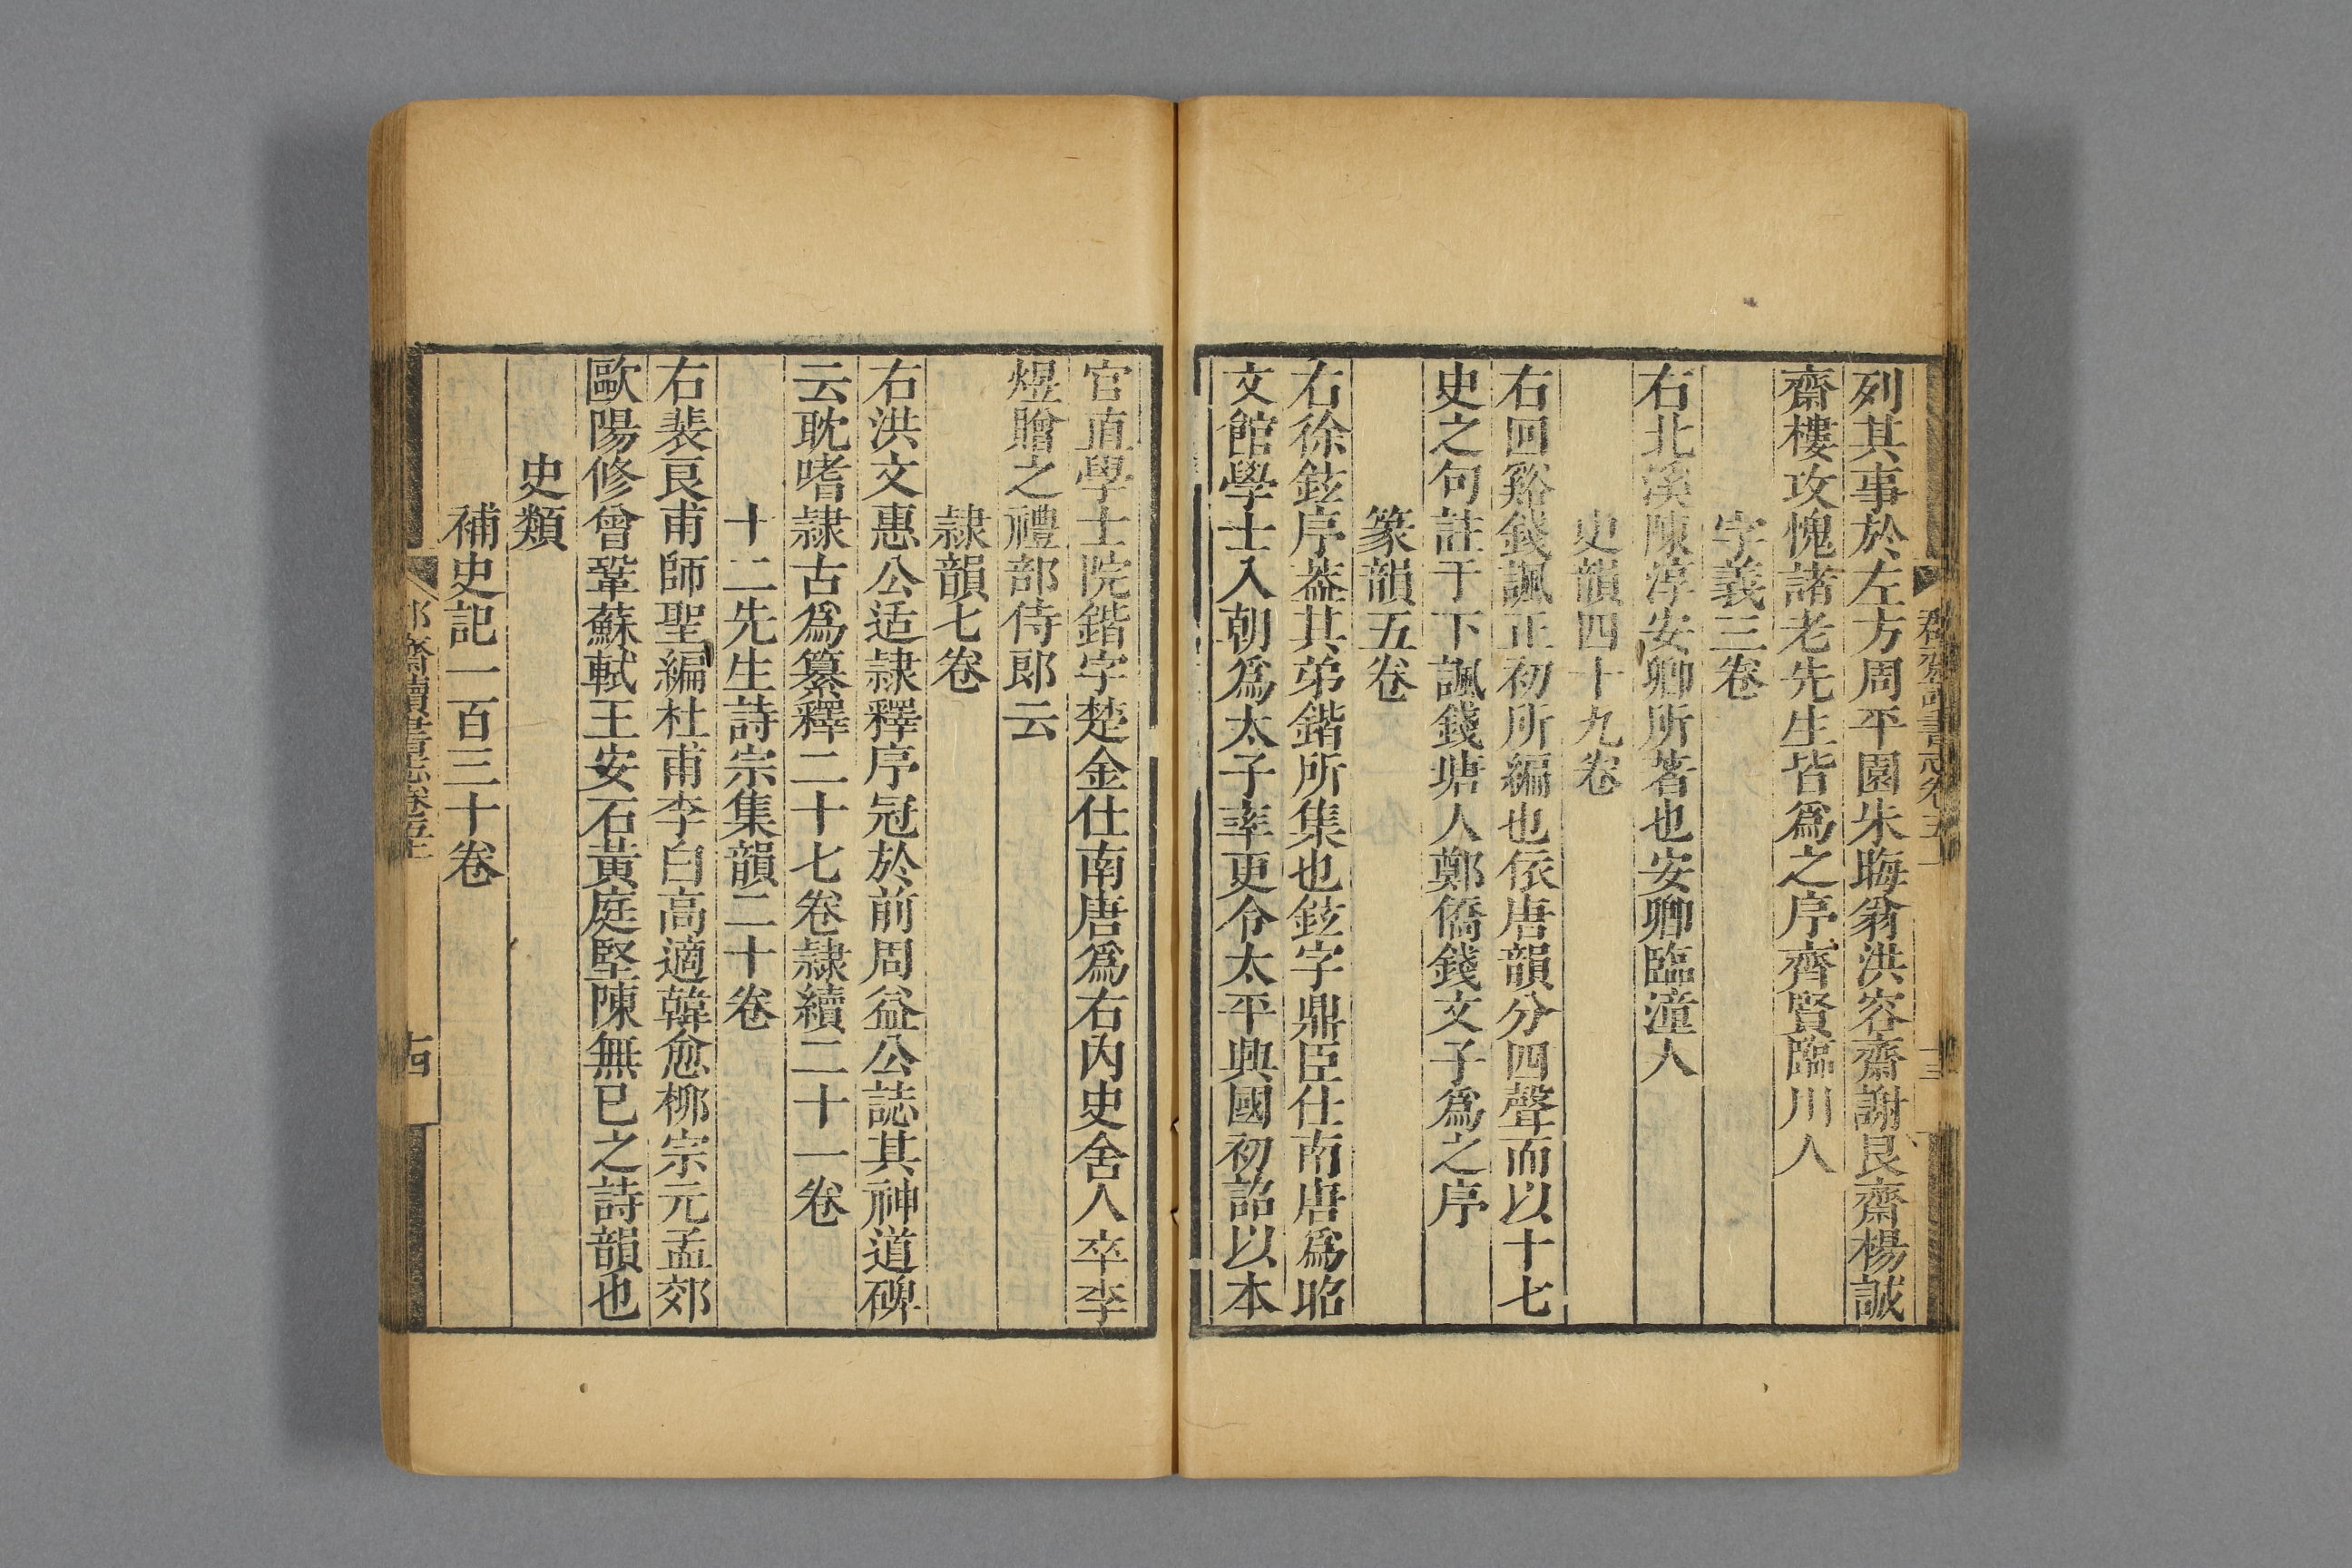 列其事於左方周平園朱晦翁洪容齋謝艮齋楊誠
齋樓攻愧諸老先生皆爲之序齊賢臨川人
字義三卷
右北溪陳淳安卿所著也安卿臨潼人
史韻四十九卷
右回谿錢諷正初所編也依唐韻分四聲而以十七
史之句註于下諷錢塘人鄭僑錢文子爲之序
篆韻五卷
右徐鉉序葢其弟鍇所集也鉉字鼎臣仕南唐爲昭
文館學士入朝爲太子率更令太平興國初詔以本
官直學士院鍇字楚金仕南唐爲右內史舍人卒李
煜贈之禮部侍郎云
隷韻七卷
右洪文惠公适隷釋序冠於前周益公誌其神道碑
云耽嗜隷古爲纂釋二十七卷隷續二十一卷
十二先生詩宗集韻二十卷
右裴良甫師聖編杜甫李白高適韓愈柳宗元孟郊
歐陽修曾鞏蘇軾王安石黃庭堅陳無已之詩韻也
史類
補史記一百三十卷